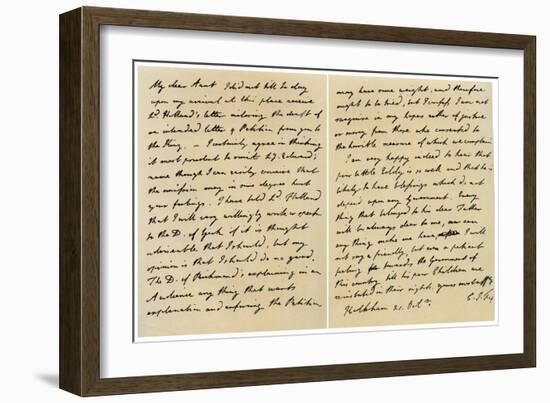 My dear Aunt I did not till to day
upon my arrival at this place receive
Ld. Holland's letter inclosing the draft of
an intended letter & Petition from you to
the King. I certainly agree in thinking
it most prudent to omit Ld. Edward's
name though I can easily conceive that
the omission may in one degree hurt
your feelings. I have told Ld. Holland
that I will very willingly write or speak
to the D. of York if it is thought
adviseable that I should, but my
opinion is that I should do no good.
The D. of Richmond's explaining in an
Audience any thing that wants
explanation and enforcing the Petition
may have some weight, and therefore
ought to be tried, but I confess I am not
sanguine in my hopes either of justice
or mercy from those who consented to
the horrible measure of which we complain
I am very happy indeed to hear that
poor little Eddy is so well and that he is
likely to have blessings which do not
depend upon any Government. Every
thing that belonged to his dear Father
will be always dear to me, nor can
any thing make me have, I will
not say a friendly, but even a patient
feeling towards the Government of
this country till his poor Children are
reinstated in their rights. yours most affly
Holkham 21. Octr. C. J. Fox